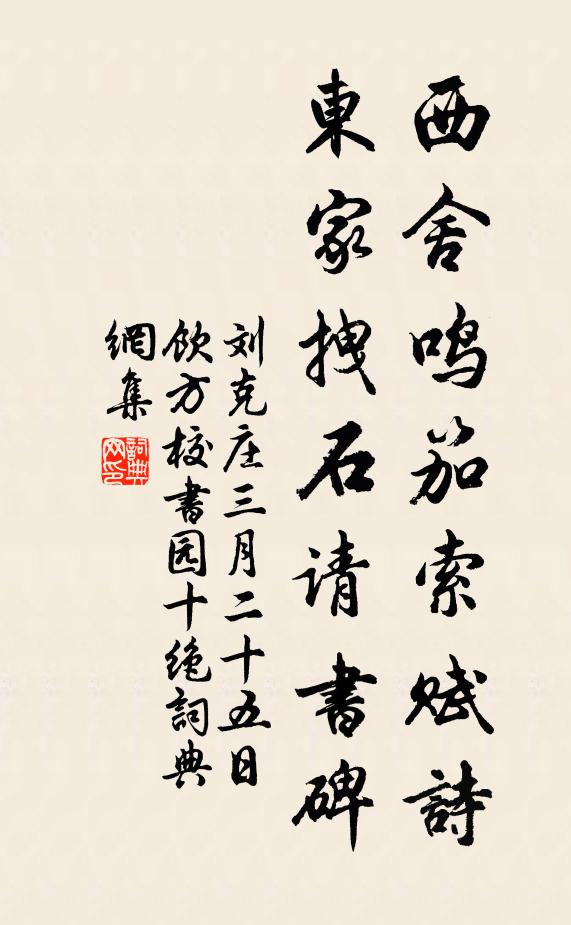 西舍鸣笳索赋詩
東家拽石请書碑
刘克庄三月二十五日
飲方校書园十绝詞典
網集
詞典
网印